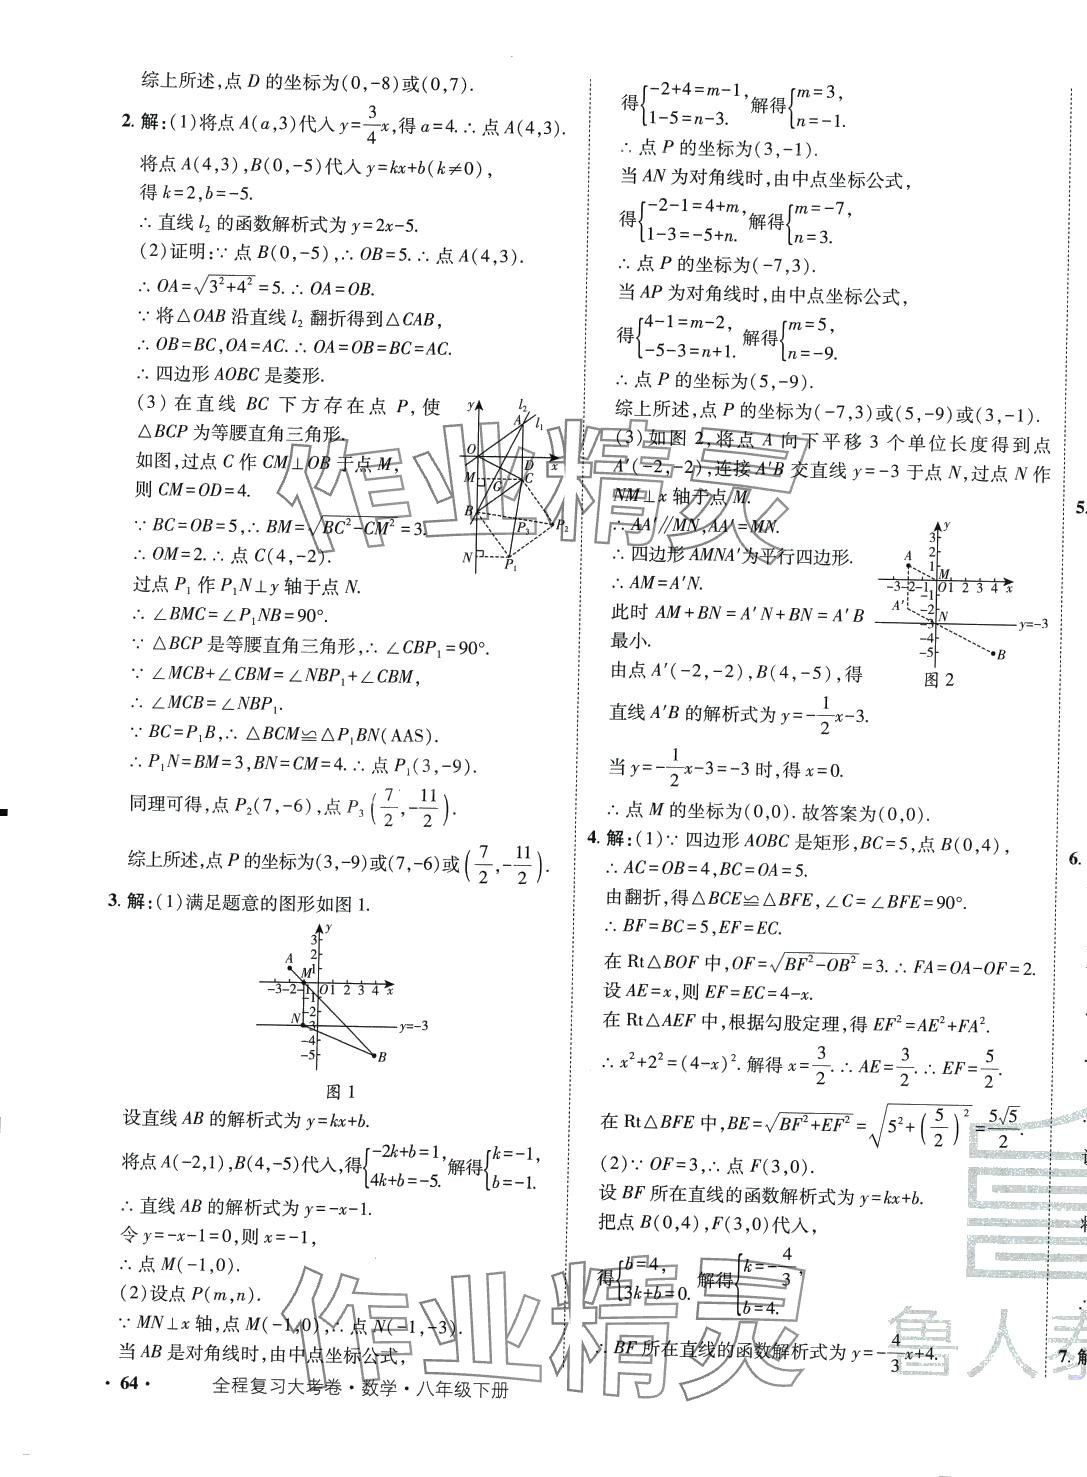 综上所述,点 D 的坐标为(0,-8)或(0,7).
2. 解:(1)将点 A(a,3)代入 y=3/4x,得 a=4.∴ 点 A(4,3).
将点 A(4,3),B(0,-5)代入 y=kx+b(k≠0),
得 k=2,b=-5.
∴ 直线 l₂ 的函数解析式为 y=2x-5.
(2)证明:∵ 点 B(0,-5),∴ OB=5.∴ 点 A(4,3).
∴ OA=√(3²+4²)=5.∴ OA=OB.
∵ 将△OAB 沿直线 l₂ 翻折得到△CAB,
∴ OB=BC,OA=AC.∴ OA=OB=BC=AC.
∴ 四边形 AOBC 是菱形.
(3) 在直线 BC 下方存在点 P,使
△BCP 为等腰直角三角形.
如图,过点 C 作 CM⊥OB 于点 M,
则 CM=OD=4.
∵ BC=OB=5,∴ BM=√(BC²-CM²)=3.
∴ OM=2.∴ 点 C(4,-2).
过点 P₁ 作 P₁N⊥y 轴于点 N.
∴ ∠BMC=∠P₁NB=90°.
∵ △BCP 是等腰直角三角形,∴ ∠CBP₁=90°.
∵ ∠MCB+∠CBM=∠NBP₁+∠CBM,
∴ ∠MCB=∠NBP₁.
∵ BC=P₁B,∴ △BCM≌△P₁BN(AAS).
∴ P₁N=BM=3,BN=CM=4.∴ 点 P₁(3,-9).
同理可得,点 P₂(7,-6),点 P₃(7/2,-11/2).
综上所述,点 P 的坐标为(3,-9)或(7,-6)或(7/2,-11/2).
3. 解:(1)满足题意的图形如图 1.
图 1
设直线 AB 的解析式为 y=kx+b.
将点 A(-2,1),B(4,-5)代入,得{-2k+b=1, 4k+b=-5. 解得{k=-1, b=-1.
∴ 直线 AB 的解析式为 y=-x-1.
令 y=-x-1=0,则 x=-1,
∴ 点 M(-1,0).
(2)设点 P(m,n).
∵ MN⊥x 轴,点 M(-1,0),∴ 点 N(-1,-3).
当 AB 是对角线时,由中点坐标公式,
· 64 · 全程复习大考卷·数学·八年级下册
得{-2+4=m-1, 1-5=n-3. 解得{m=3, n=-1.
∴ 点 P 的坐标为(3,-1).
当 AN 为对角线时,由中点坐标公式,
得{-2-1=4+m, 1-3=-5+n. 解得{m=-7, n=3.
∴ 点 P 的坐标为(-7,3).
当 AP 为对角线时,由中点坐标公式,
得{4-1=m-2, -5-3=n+1. 解得{m=5, n=-9.
∴ 点 P 的坐标为(5,-9).
综上所述,点 P 的坐标为(-7,3)或(5,-9)或(3,-1).
(3)如图 2,将点 A 向下平移 3 个单位长度得到点
A'(-2,-2),连接 A'B 交直线 y=-3 于点 N,过点 N 作
NM⊥x 轴于点 M.
∴ AA'∥MN,AA'=MN.
∴ 四边形 AMNA'为平行四边形.
∴ AM=A'N.
此时 AM+BN=A'N+BN=A'B
最小.
由点 A'(-2,-2),B(4,-5),得
图 2
直线 A'B 的解析式为 y=-1/2x-3.
当 y=-1/2x-3=-3 时,得 x=0.
∴ 点 M 的坐标为(0,0).故答案为(0,0).
4. 解:(1)∵ 四边形 AOBC 是矩形,BC=5,点 B(0,4),
∴ AC=OB=4,BC=OA=5.
由翻折,得△BCE≌△BFE,∠C=∠BFE=90°.
∴ BF=BC=5,EF=EC.
在 Rt△BOF 中,OF=√(BF²-OB²)=3.∴ FA=OA-OF=2.
设 AE=x,则 EF=EC=4-x.
在 Rt△AEF 中,根据勾股定理,得 EF²=AE²+FA².
∴ x²+2²=(4-x)².解得 x=3/2.∴ AE=3/2.∴ EF=5/2.
在 Rt△BFE 中,BE=√(BF²+EF²)=√(5²+(5/2)²)=5√5/2.
(2)∵ OF=3,∴ 点 F(3,0).
设 BF 所在直线的函数解析式为 y=kx+b.
把点 B(0,4),F(3,0)代入,
得{b=4, 3k+b=0. 解得{k=-4/3, b=4.
∴ BF 所在直线的函数解析式为 y=-4/3x+4.
5.
6.
7. 解
作业精灵
作业精灵
鲁人泰